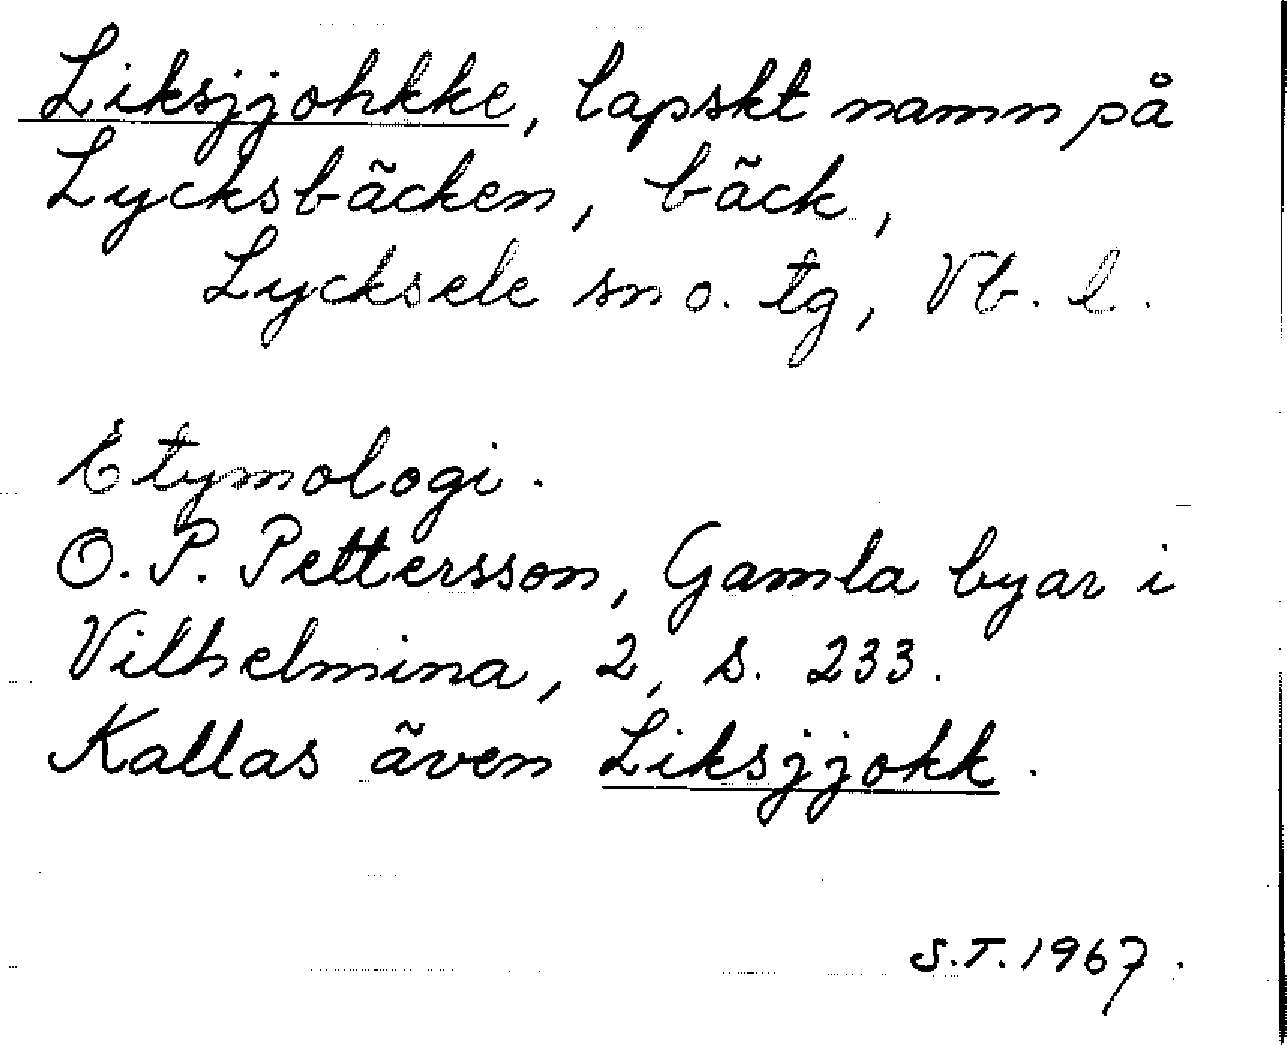 Liksjjohkke, lapskt namn på
Lycksbäcken, bäck,
Lycksele sn o. tg, Vb. l.
Etymologi.
O. P. Pettersson, Gamla byar i
Vilhelmina, 2, s. 233.
Kallas även Liksjjokk.
S.T. 1967.